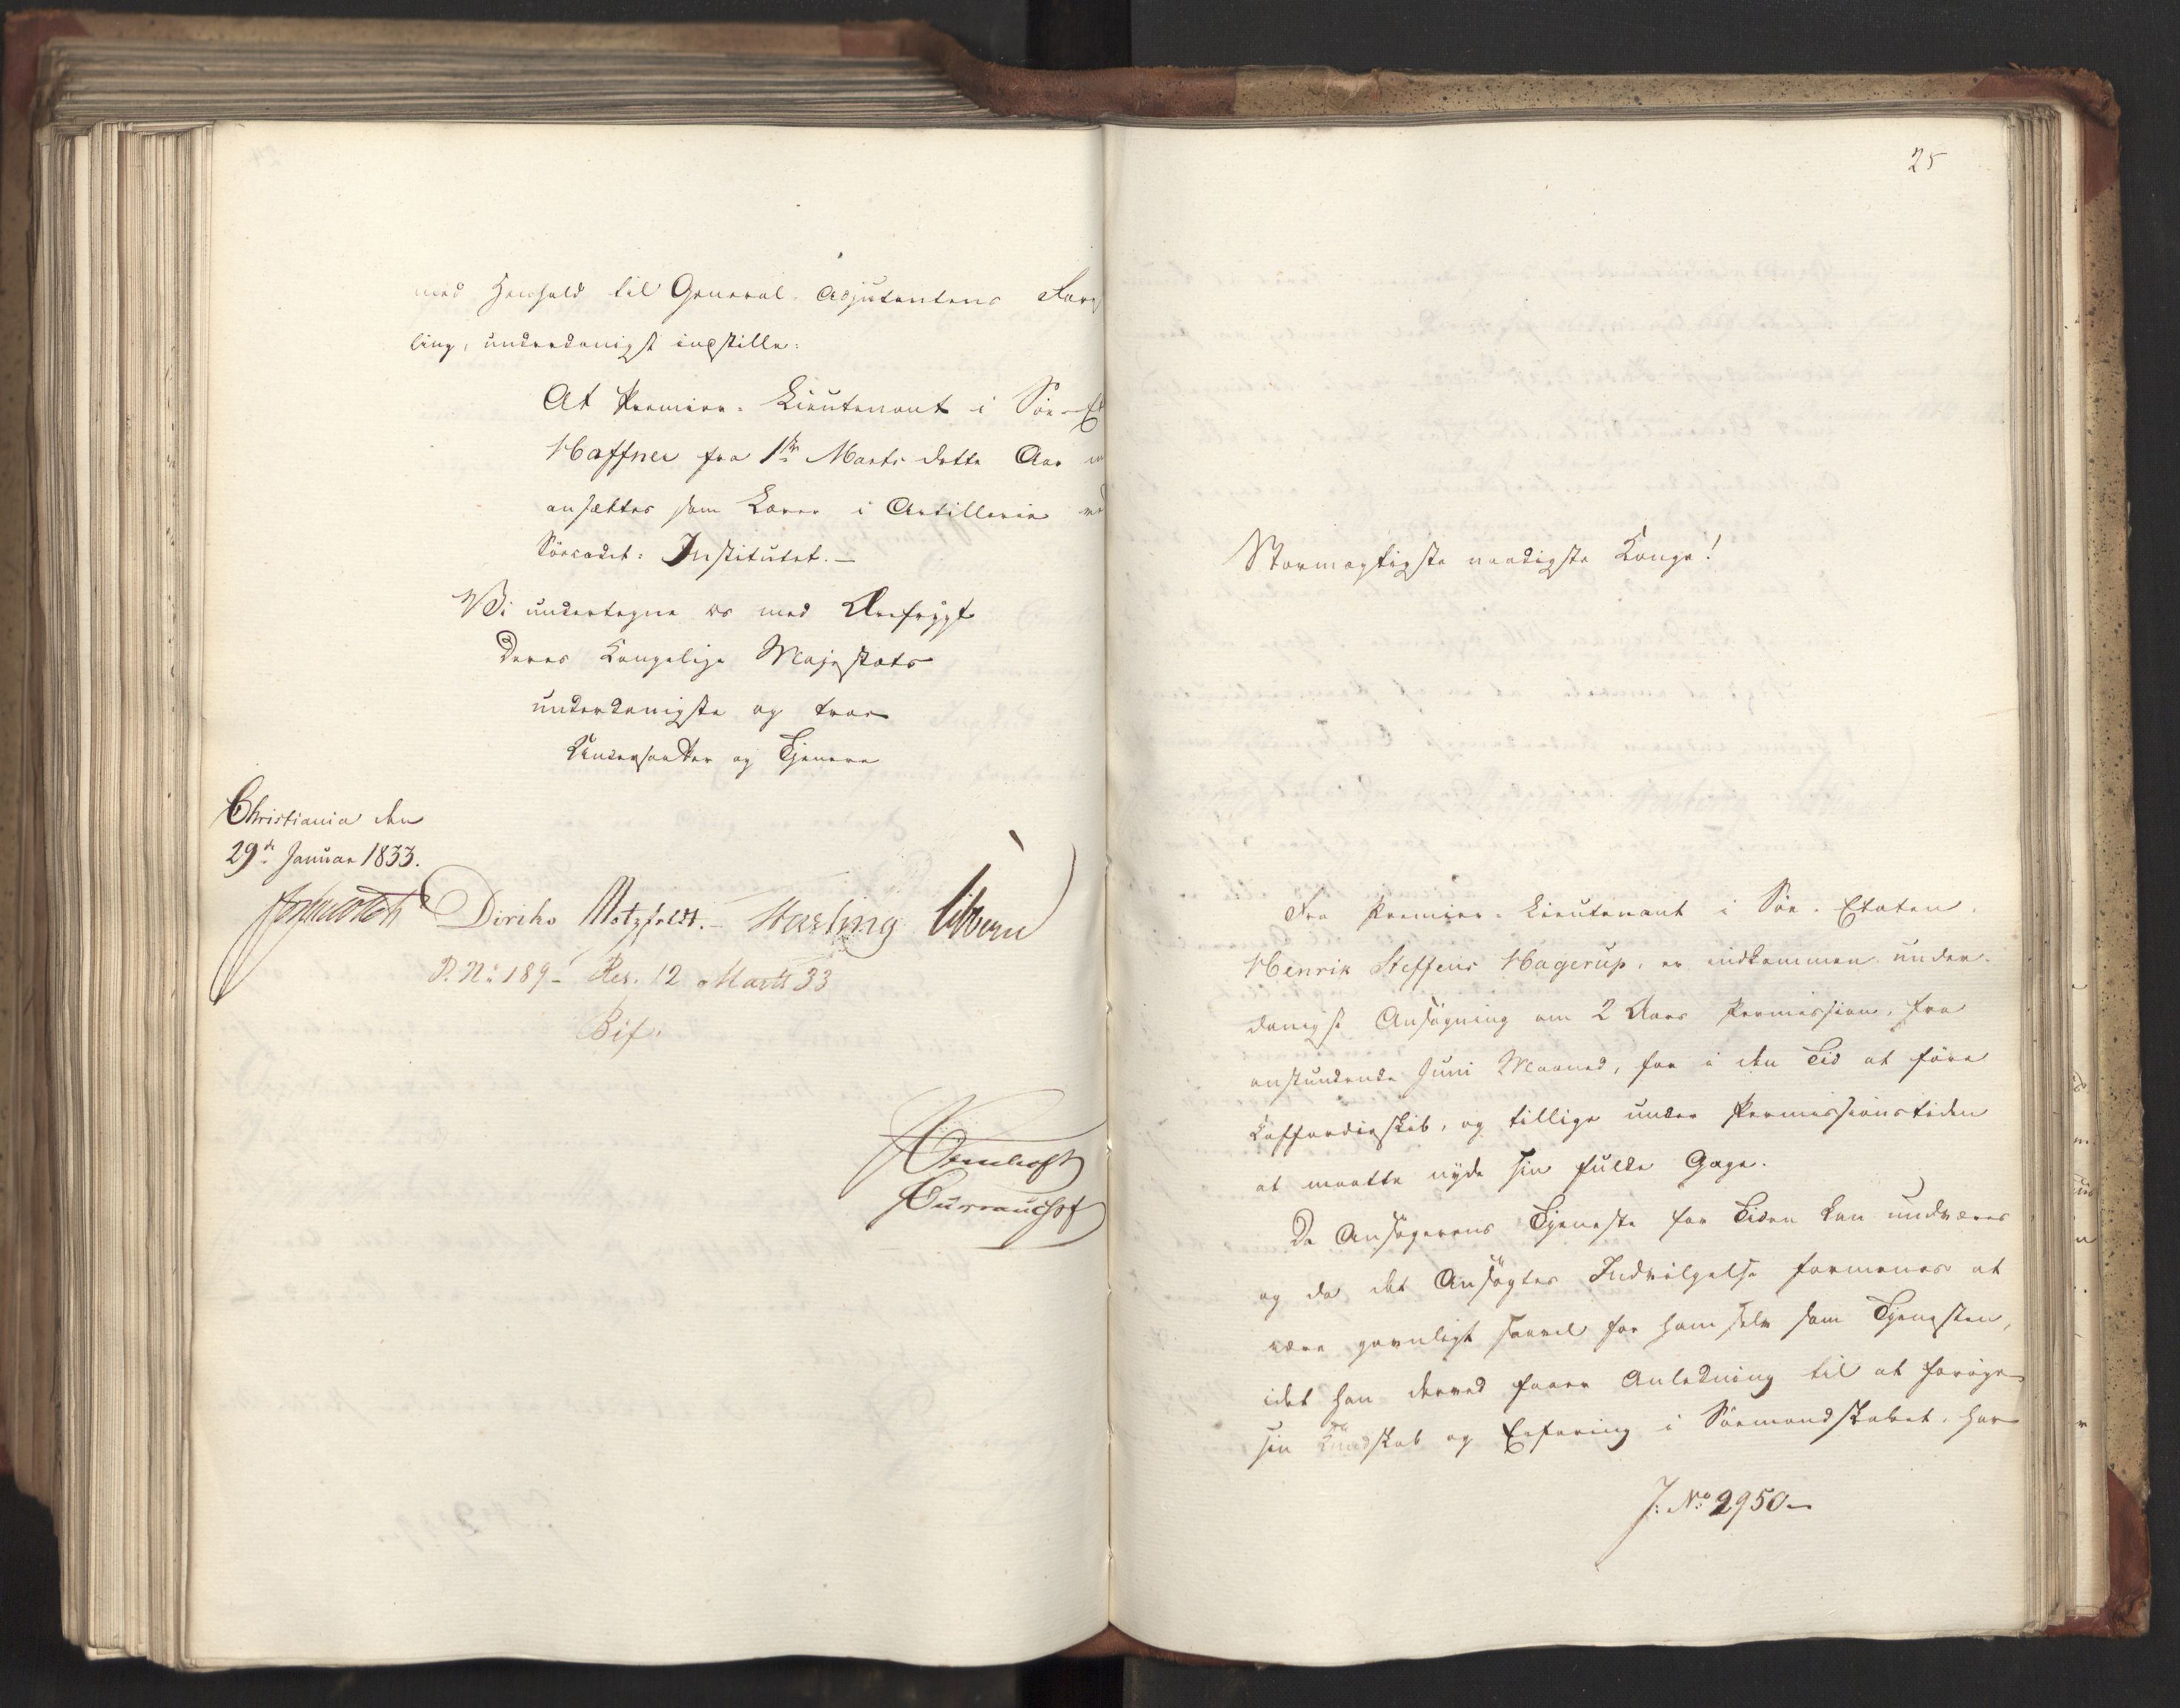 med Henhold til General-Adjutantens Fore
ling, underdanigst indstille:
At Premier-Lieutenant i Søe-Et
Haffner fra 1ste Marts dette Aar
ansættes som Lærer i Artillerie ved
Søecadet-Institutet.—
Vi undertegne os med Ærefrygt
Deres Kongelige Majestæts
underdanigste og troe
Undersaatter og Tjenere
Christiania den
29de Januar 1833.
Diriks Motzfeldt.— Hasling
D. No 189— Res. 12 Marts 33
Bif.
25
Stormægtigste naadigste Konge!
Fra Premier-Lieutenant i Søe-Etaten,
Henrik Steffens Hagerup, er indkommen under-
danigst Ansøgning om 2 Aars Permission, fra
anstundende Juni Maaned, for i den Tid at føre
Kaffardieskib, og tillige under Permissionstiden
at maatte nyde sin fulde Gage.
Da Ansøgerens Tjeneste for Tiden kan undværes
og da det Ansøgtes Indvilgelse formenes at
være gavnligt saavel for ham selv som Tjenesten,
idet han derved faaer Anledning til at forøge
sin Kundskab og Erfaring i Sømandskabet, har
J: No 2950—